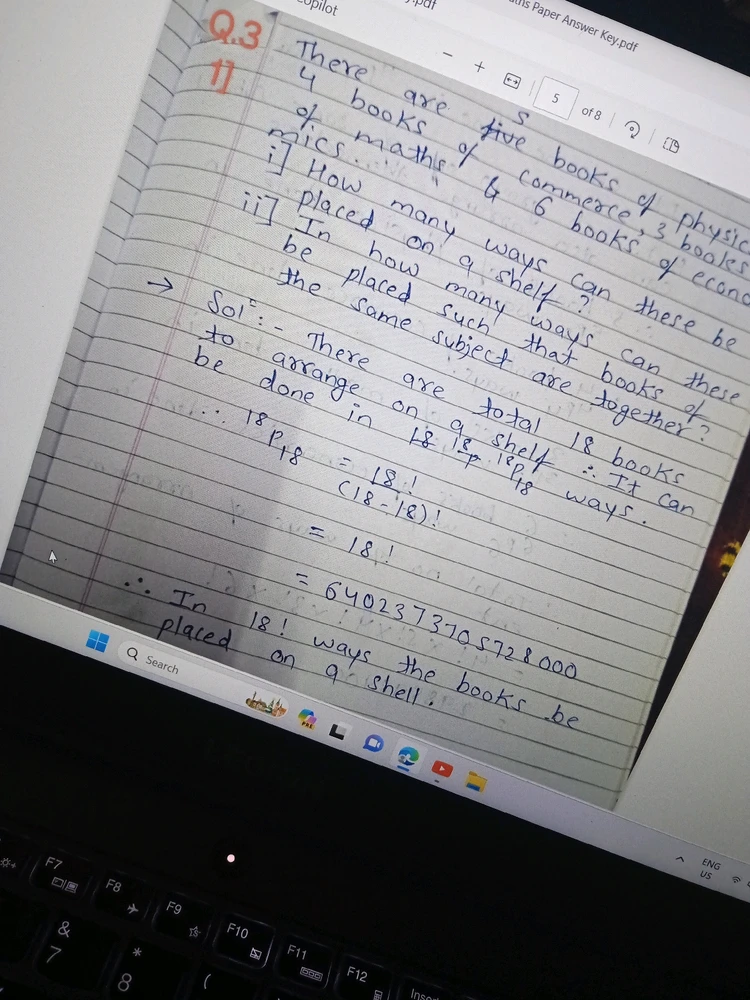 opilot
y.pdf
ths Paper Answer Key.pdf
5
of 8
Q.3
1]
There are five 5 books of physic
4 books of commerce, 3 books
of maths & 6 books of econo
mics.
i] How many ways can these be
placed on a shelf?
ii] In how many ways can these
be placed such that books of
the same subject are together?
→ Solⁿ:- There are total 18 books
to arrange on a shelf ∴ It can
be done in 18 18p 18P18 ways.
∴ 18P18 = 18!
(18-18)!
= 18!
= 6402373705728000
∴ In 18! ways the books be
placed on a shell.
Search
PRE
ENG
US
F7
F8
F9
F10
F11
F12
Inse
&
7
*
8
(